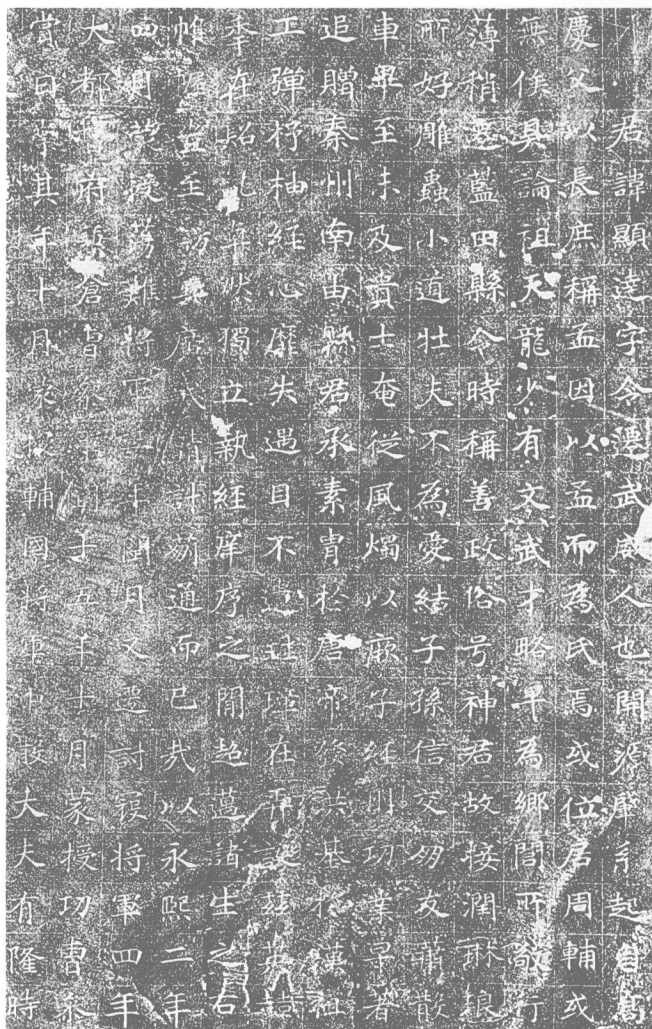 君諱顯達字令遷武威人也開源肇系起自高
慶父以長庶稱孟因以孟而為氏焉或位居周輔或
無俟具論祖天龍少有文武才略早為鄉閭所敬行
薄稍遷藍田縣令時稱善政俗号神君故接潤琳琅
所好雕蟲小道壯夫不為愛結子孫信交朋友蕭散
車畢至未及貴士奄從風燭以厥子經明功業早著
追贈秦州南由縣君承素胄於唐帝條洪基於漢祖
工彈杼柚經心靡失遇目不遺在弄茲英
季在卓然獨立執經庠序之閒超邁諸生之右
帷豈至計通而已哉以永熙二年
四月蕩難將軍年閏月又遷討寇將軍四年
大都府倉曹五年十月蒙授功曹參
當日其年十月蒙授輔國將軍中散大夫有隆時